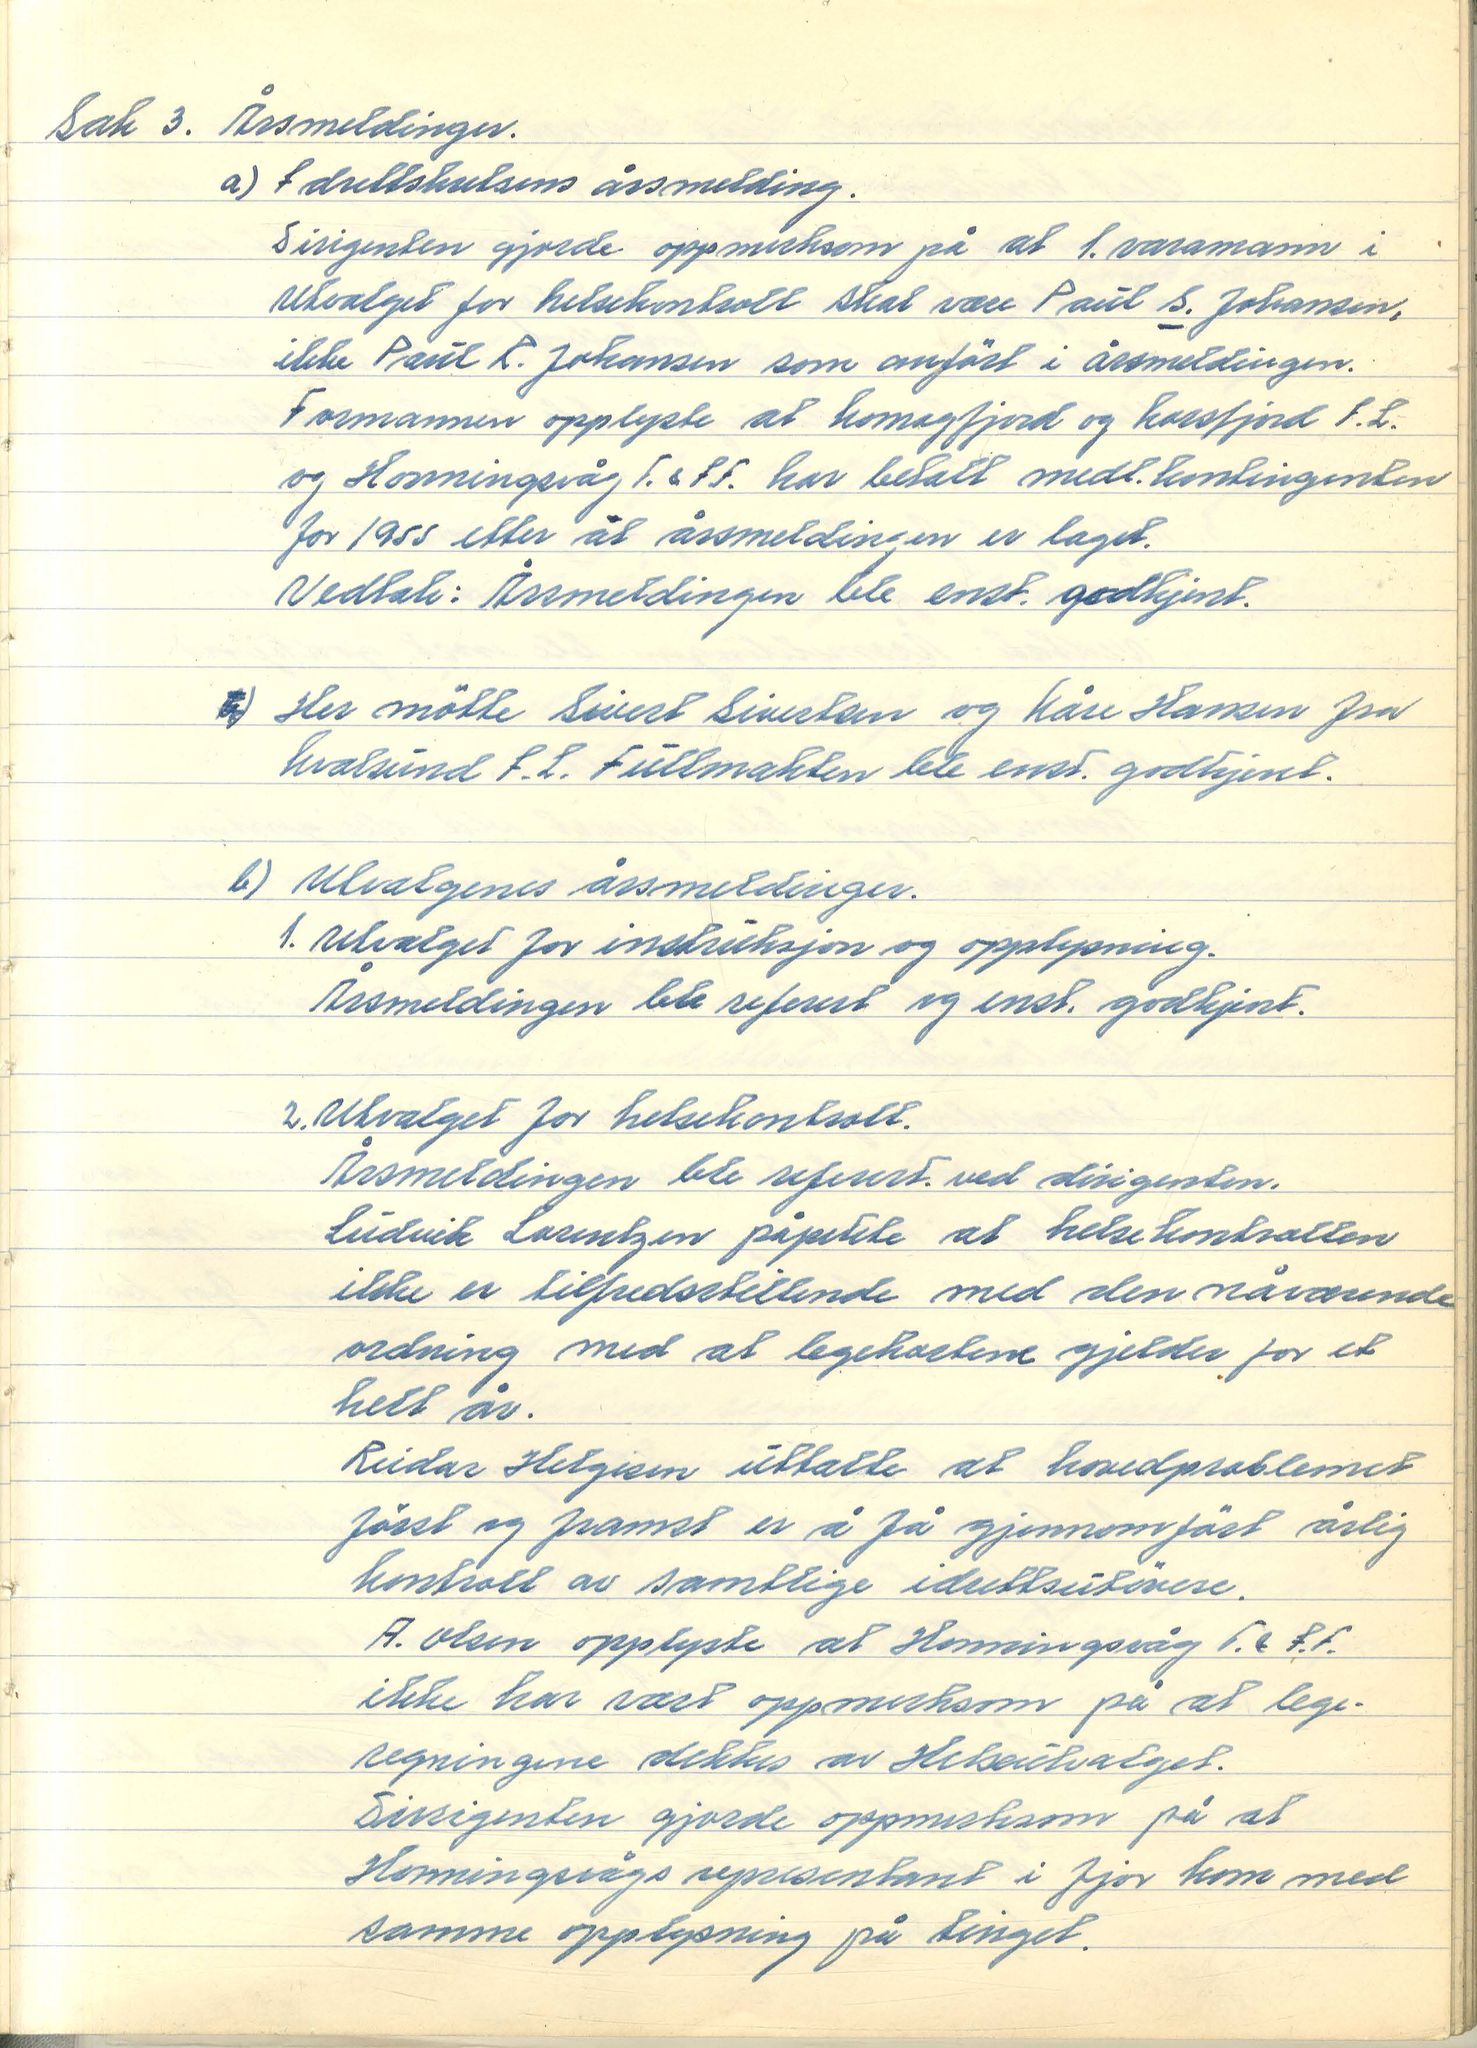 Sak 3. Årsmeldinger.
a) Idrettskretsens årsmelding.
Dirigenten gjorde oppmerksom på at 1. varamann i
Utvalget for helsekontroll skal være Paul S. Johansen,
ikke Paul L. Johansen som anført i årsmeldingen.
Formannen opplyste at Komagfjord og Korsfjord I.L.
og Honningsvåg T. & I.F. har betalt medl.kontingenten
for 1955 etter at årsmeldingen er laget.
Vedtak: Årsmeldingen ble enst. godkjent.
Her møtte Sivert Sivertsen og Kåre Hansen fra
Kvalsund I.L. Fullmakten ble enst. godkjent.
b) Utvalgenes årsmeldinger.
1. Utvalget for instruksjon og opplysning.
Årsmeldingen ble referert og enst. godkjent.
2. Utvalget for helsekontroll.
Årsmeldingen ble referert. ved dirigenten.
Ludvik Lorentzen påpekte at helsekontrollen
ikke er tilfredsstillende med den nåværende
ordning med at legekortene gjelder for et
helt år.
Reidar Helgesen uttalte at hovedproblemet
først og framst er å få gjennomført årlig
kontroll av samtlige idrettsutøvere.
A. Olsen opplyste at Honningsvåg T. & I.F.
ikke har vært oppmerksom på at lege-
regningene dekkes av Helseutvalget.
Dirrigenten gjorde oppmerksom på at
Honningsvågs representant i fjor kom med
samme opplysning på tinget.